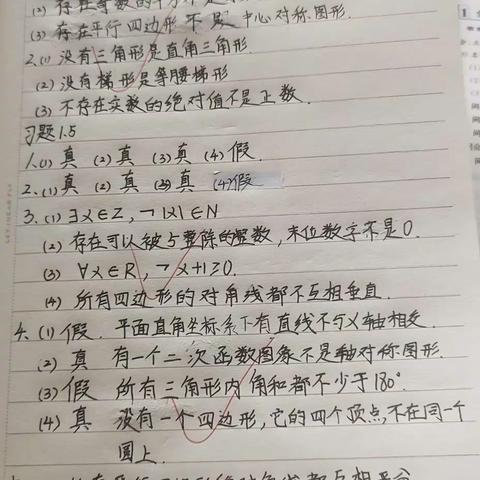 (2) 存在
(3) 存在平行四边形不是中心对称图形.
2.(1) 没有三角形是直角三角形
(2) 没有梯形是等腰梯形
(3) 不存在实数的绝对值不是正数.
习题1.5
1.(1) 真 (2) 真 (3) 真 (4) 假.
2.(1) 真 (2) 真 (3) 真 (4) 假
3.(1) ∃x∈Z, ¬|x|∈N
(2) 存在可以被5整除的整数, 末位数字不是0.
(3) ∀x∈R, ¬x+1≥0.
(4) 所有四边形的对角线都不互相垂直.
4.(1) 假. 平面直角坐标系下有直线不与x轴相交.
(2) 真 有一个二次函数图象不是轴对称图形.
(3) 假 所有三角形内角和都不少于180°.
(4) 真 没有一个四边形, 它的四个顶点, 不在同一个
圆上.